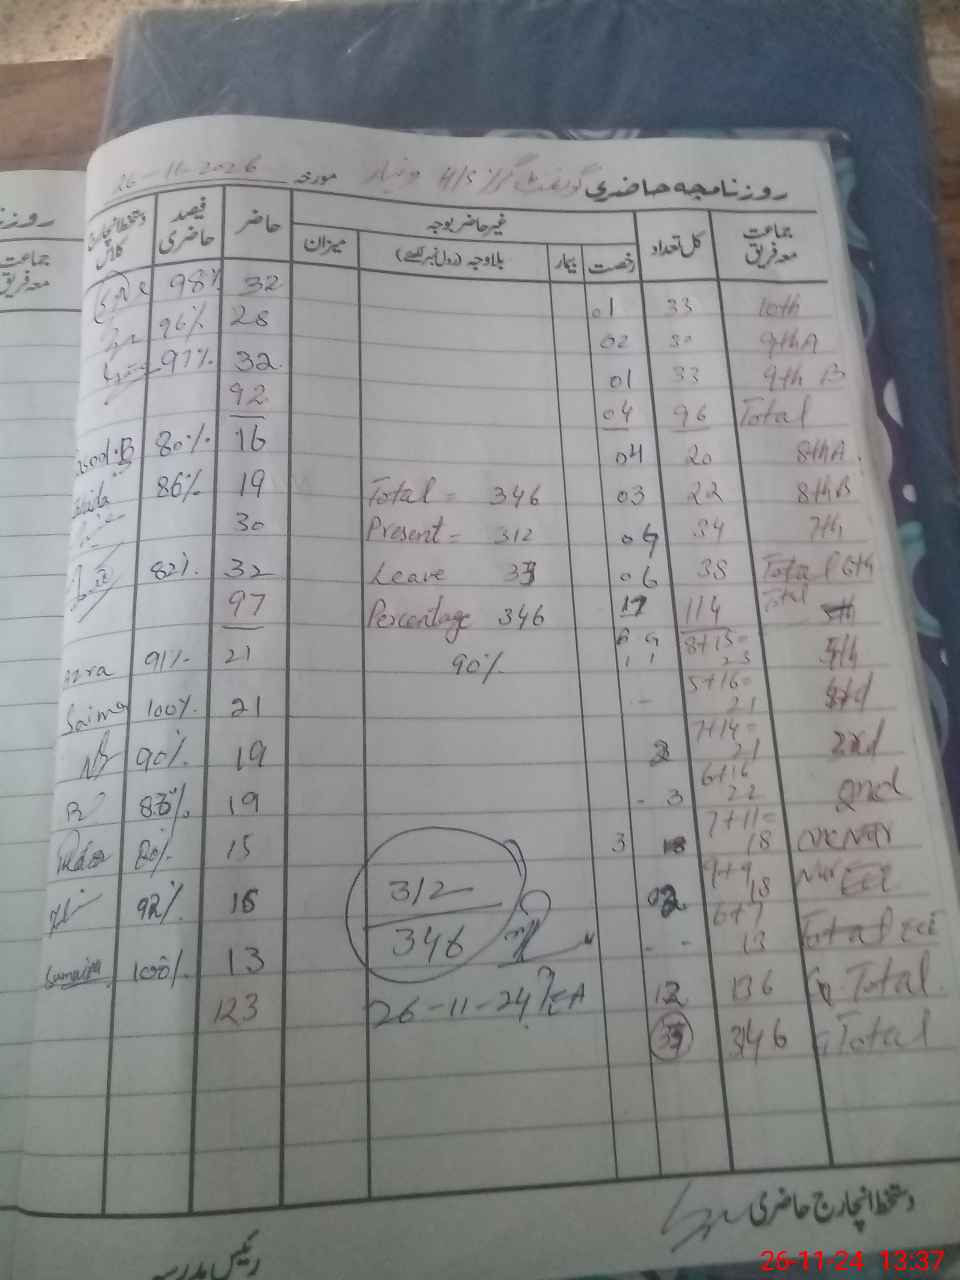 روزنامجہ حاضری گورنمنٹ گرلز H/S مورخہ 26-11-2026
جماعت معہ فریق کل تعداد غیر حاضر بوجہ حاضر فیصد حاضری دستخط انچارج کلاس
رخصت بیمار بلاوجہ (رول نمبر لکھیے) میزان
10th 33 01 32 98%
9th A 30 02 28 96%
9th B 33 01 32 97%
Total 96 04 92
8th A 20 04 16 80%
8th B 22 03 Total = 346 19 86%
7th 34 04 Present = 312 30
Total 6th 38 06 Leave 32 82%
Total 114 17 Percentage 346 97
5th 8+15= 23 90% 21 91% Azra
5+16= 21 - 21 100% Saima
7+14= 21 2 19 90%
2nd 6+16 22 - 3 19
7+11= 18 3 15
Nur ECE 9+9 18 02 16 92%
ECE 6+7 13 - - 13 100%
G Total 136 12 123
G Total 346
312
346
26-11-24
دستخط انچارج حاضری
رئیس مدرسہ
روزنا
جماعت
معہ فریق
26-11-24 13:37